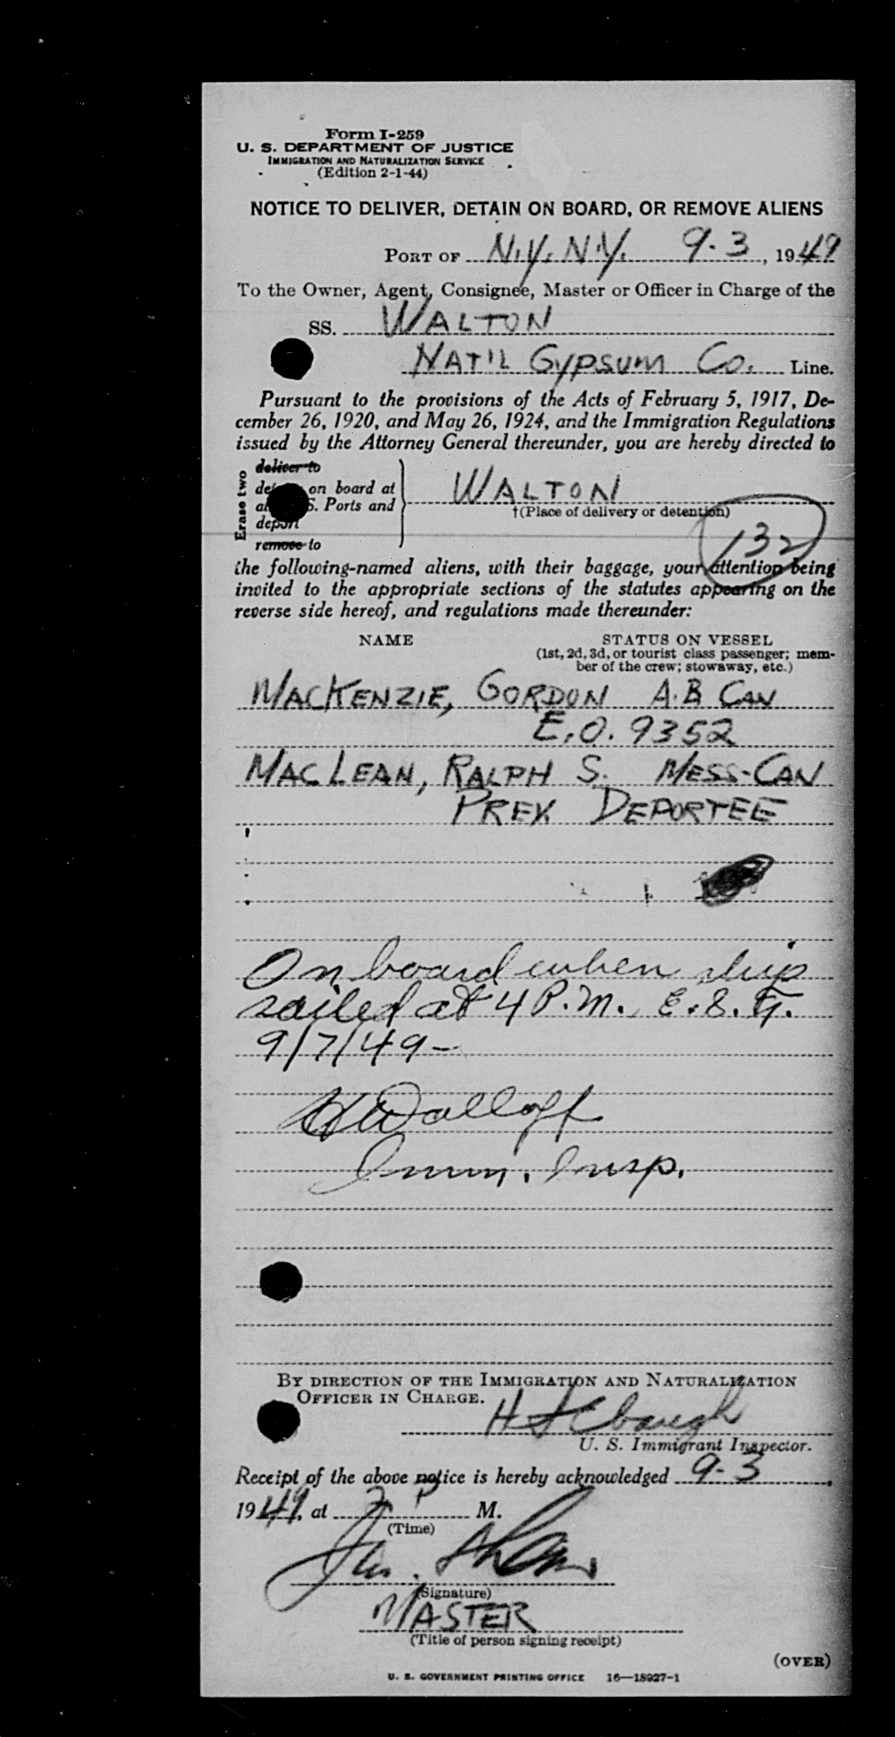 Form I-259
U. S. DEPARTMENT OF JUSTICE
IMMIGRATION AND NATURALIZATION SERVICE
(Edition 2-1-44)
NOTICE TO DELIVER, DETAIN ON BOARD, OR REMOVE ALIENS
PORT OF N.Y. N.Y. 9-3, 1949
To the Owner, Agent, Consignee, Master or Officer in Charge of the
SS. WALTON
NAT'L GYPSUM CO. Line.
Pursuant to the provisions of the Acts of February 5, 1917, De-
cember 26, 1920, and May 26, 1924, and the Immigration Regulations
issued by the Attorney General thereunder, you are hereby directed to
Erase two
deliver to
on board at
Ports and
deport
remove to
WALTON
†(Place of delivery or detention)
132
the following-named aliens, with their baggage, your attention being
invited to the appropriate sections of the statutes appearing on the
reverse side hereof, and regulations made thereunder:
NAME STATUS ON VESSEL
(1st, 2d, 3d, or tourist class passenger; mem-
ber of the crew; stowaway, etc.)
MACKENZIE, GORDON A.B CAN
E.O. 9352
MACLEAN, RALPH S. MESS-CAN
PREV DEPORTEE
On board when ship
sailed at 4 P.M., E.S.T.
9/7/49-
Imm. Insp.
BY DIRECTION OF THE IMMIGRATION AND NATURALIZATION
OFFICER IN CHARGE.
U. S. Immigrant Inspector.
Receipt of the above notice is hereby acknowledged 9-3,
1949, at 2 P M.
(Time)
(Signature)
MASTER
(Title of person signing receipt)
(OVER)
U. S. GOVERNMENT PRINTING OFFICE 16—18927-1